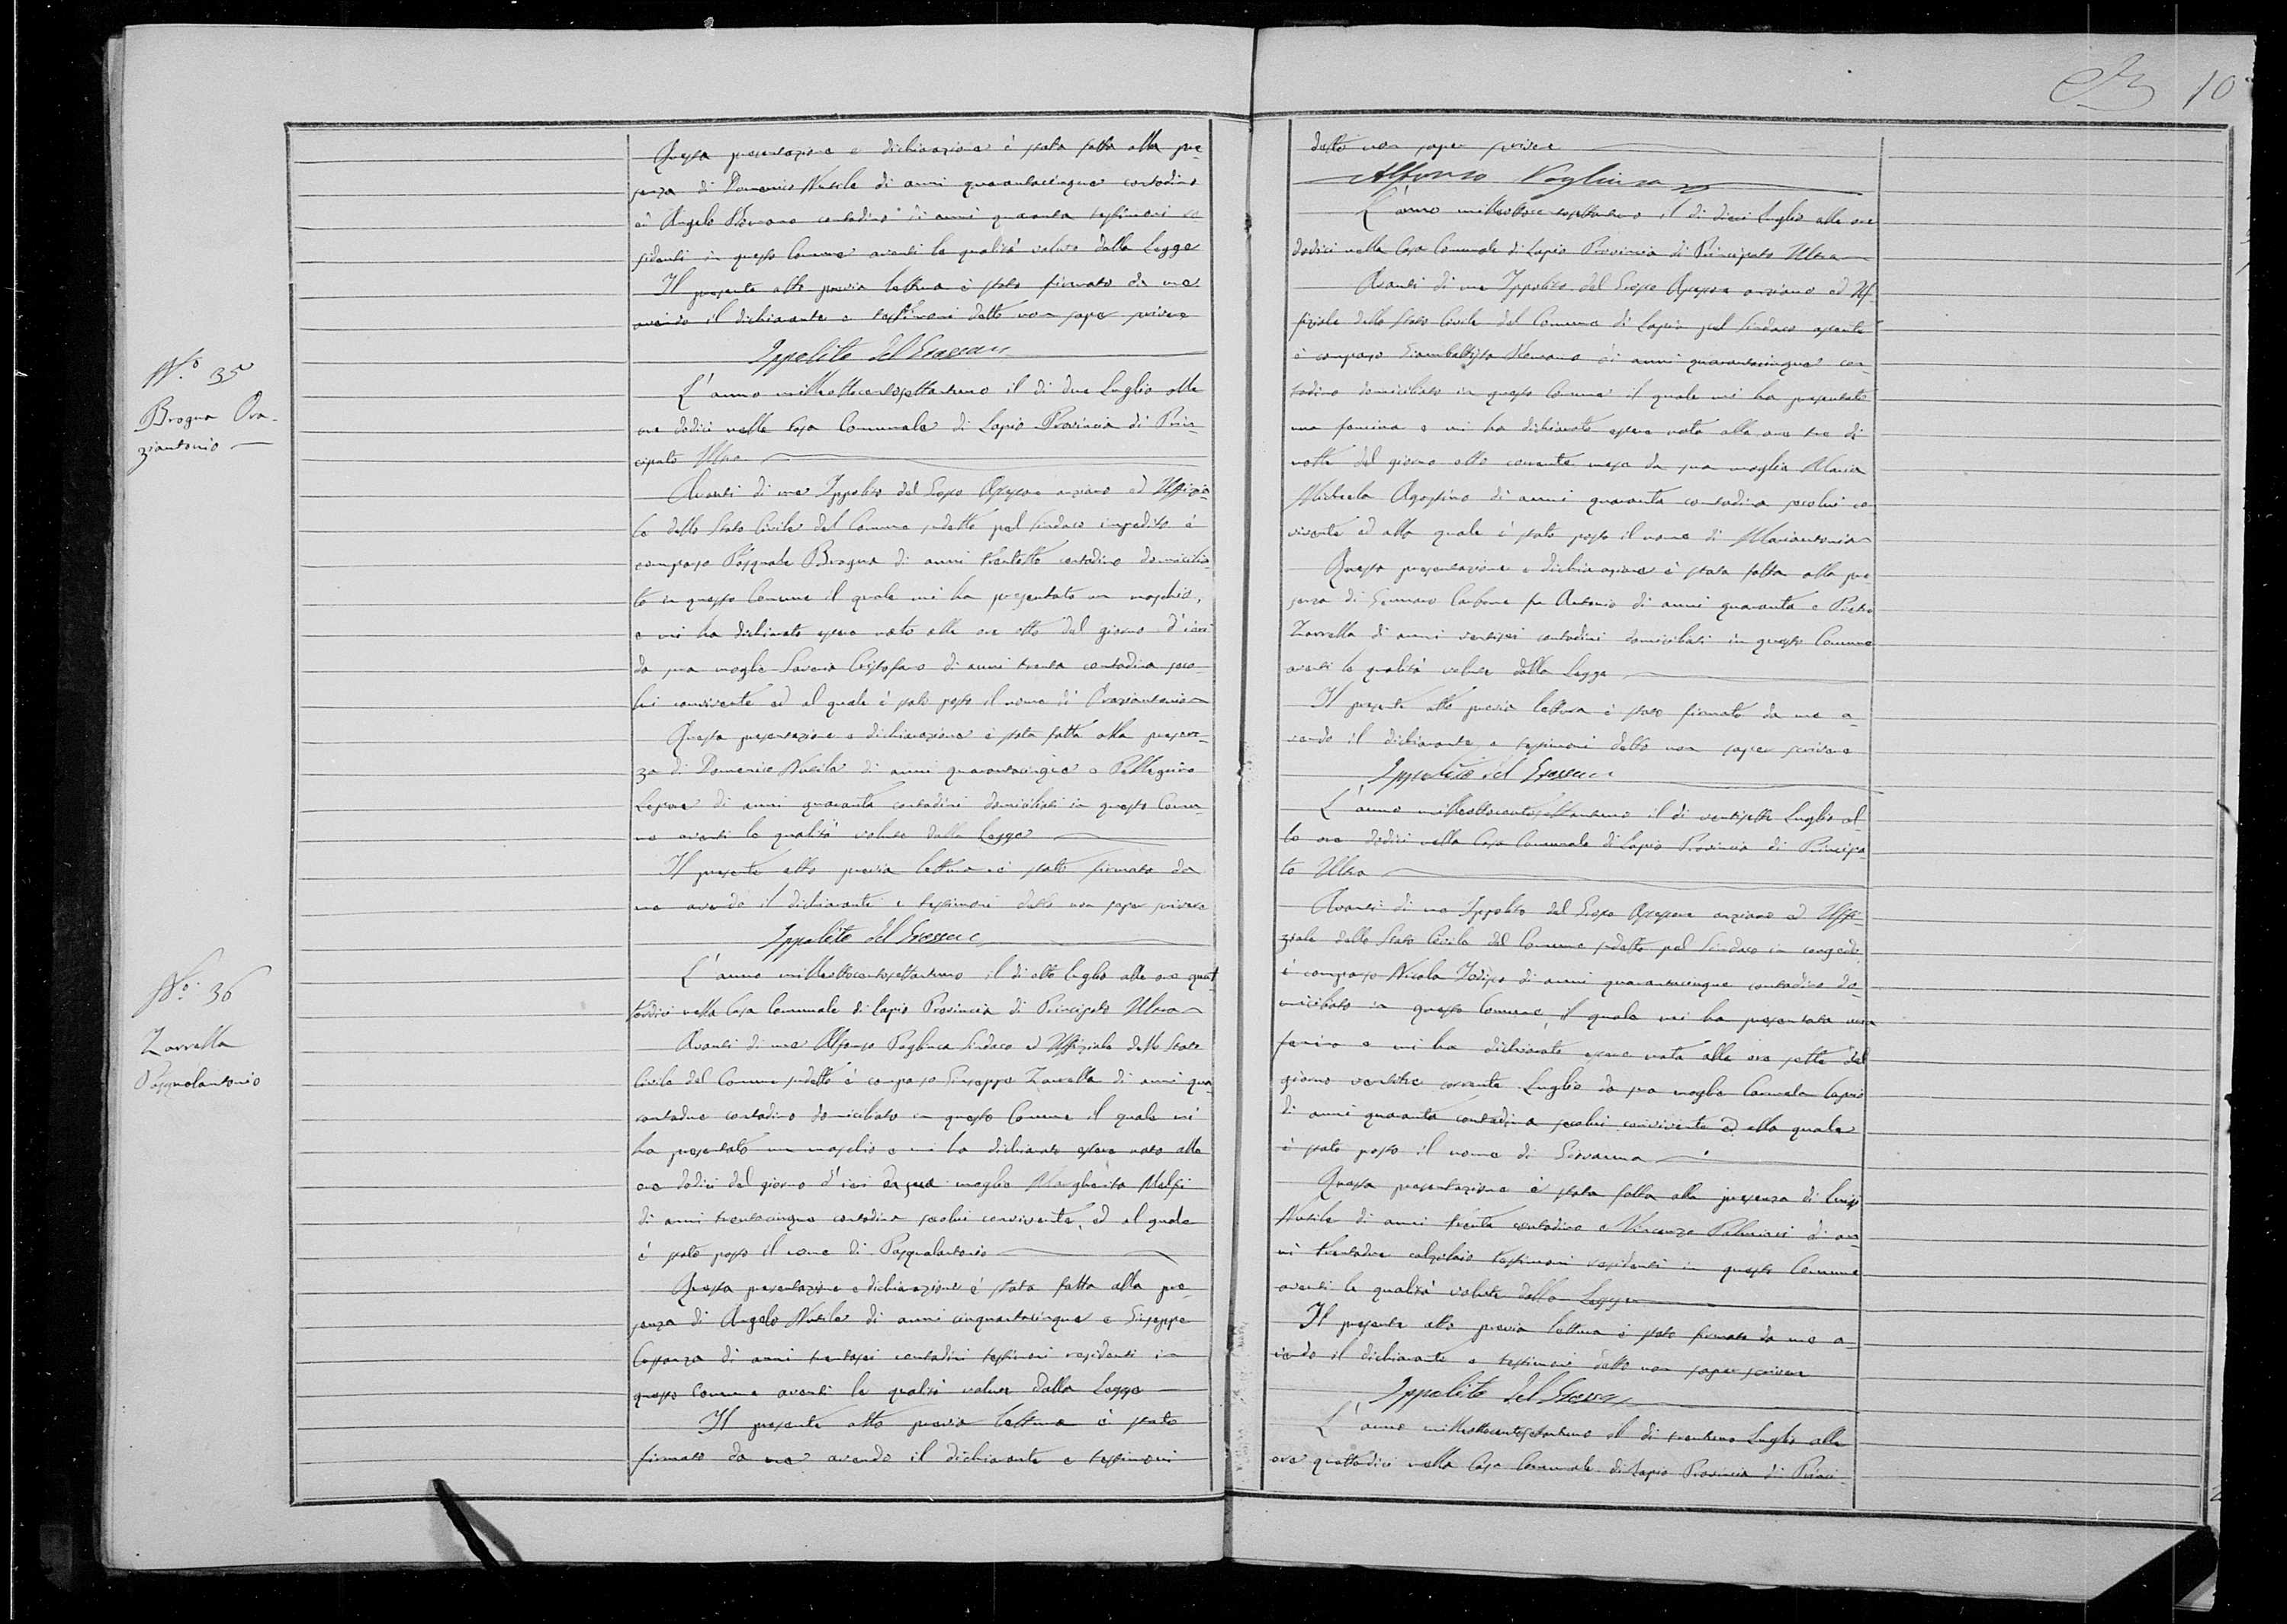 Questa presentazione e dichiarazione è stata fatta alla pre-
senza di Domenico Nusile di anni quarantacinque contadino
ed Angelo Romano contadino di anni quaranta testimoni re-
sidenti in questo Comune aventi le qualità volute dalla Legge
Il presente atto previa lettura è stato firmato da me
avendo il dichiarante e testimoni detto non saper scrivere
Ippolito del
N.° 35
Brogna Ora-
ziantonio
L'anno milleottocentosettantuno il dì due Luglio alle
ore dodici nella Casa Comunale di Lapio Provincia di Prin-
cipato Ultra
Avanti di me Ippolito del Assessore anziano ed Uffizia-
le dello Stato Civile del Comune sudetto pel Sindaco impedito è
comparso Pasquale Brogna di anni trentotto contadino domicilia-
to in questo Comune il quale mi ha presentato un maschio,
e mi ha dichiarato essere nato alle ore otto del giorno d'ieri
da sua moglie Saveria Cristofaro di anni trenta contadina seco-
lui convivente ed al quale è stato posto il nome di Oraziantonio
Questa presentazione e dichiarazione è stata fatta alla presen-
za di Domenico Nusile di anni quarantacinque e Pellegrino
Lepore di anni quaranta contadini domiciliati in questo Comu-
ne aventi le qualità volute dalla Legge
Il presente atto previa lettura è stato firmato da
me avendo il dichiarante e testimoni detto non saper scrivere
Ippolito del
N.° 36
Zarrella
Pasqualantonio
L'anno milleottocentosettantuno il dì otto luglio alle ore quat-
tordici nella Casa Comunale di Lapio Provincia di Principato Ultra
Avanti di me Alfonso Pagliuca Sindaco ed Uffiziale dello Stato
Civile del Comune sudetto è comparso Giuseppe Zarrella di anni qua-
rantadue contadino domiciliato in questo Comune il quale mi
ha presentato un maschio e mi ha dichiarato essere nato alle
ore dodici del giorno d'ieri da sua moglie Margherita Melfi
di anni trentacinque contadina secolui convivente, ed al quale
è stato posto il nome di Pasqualantonio
Questa presentazione e dichiarazione è stata fatta alla pre-
senza di Angelo Nusile di anni cinquantacinque e Giuseppe
Costanza di anni trentasei contadini testimoni residenti in
questo Comune aventi le qualità volute dalla Legge
Il presente atto previa lettura è stato
firmato da me avendo il dichiarante e testimoni
10
detto non saper scrivere
Alfonso Pagliuca
L'anno milleottocentosettantuno il dì dieci Luglio alle ore
dodici nella Casa Comunale di Lapio Provincia di Principato Ultra
Avanti di me Ippolito del Assessore anziano ed Uf-
fiziale dello Stato Civile del Comune di Lapio pel Sindaco assente
è comparso Giambattista Romano di anni quarantacinque con-
tadino domiciliato in questo Comune il quale mi ha presentato
una femina e mi ha dichiarato essere nata alle ore tre di
notte del giorno otto corrente mese da sua moglie Maria
Michela Agostino di anni quaranta contadina secolui con
vivente ed alla quale è stato posto il nome di Mariantonia
Questa presentazione e dichiarazione è stata fatta alla pre
senza di Gennaro Carbone fu Antonio di anni quaranta e Pietro
Zarrella di anni ventisei contadini domiciliati in questo Comune
aventi le qualità volute dalla Legge
Il presente atto previa lettura è stato firmato da me a-
vendo il dichiarante e testimoni detto non saper scrivere
Ippolito del
L'anno milleottocentosettantuno il dì ventisette Luglio al-
le ore dodici nella Casa Comunale di Lapio Provincia di Principa-
to Ultra
Avanti di me Ippolito del Assessore anziano ed Uffi-
ziale dello Stato Civile del Comune sudetto pel Sindaco in congedo,
è comparso Nicola di anni quarantacinque contadino do-
miciliato in questo Comune, il quale mi ha presentata una
femina e mi ha dichiarato essere nata alle ore sette del
giorno ventitre corrente Luglio da sua moglie Carmela
di anni quaranta contadina secolui convivente ed alla quale
è stato posto il nome di Giovanna
Questa presentazione è stata fatta alla presenza di Luigi
Nusile di anni trenta contadino e Vincenzo di an-
ni trentadue calzolaio testimoni residenti in questo Comune
aventi le qualità volute dalla Legge
Il presente atto previa lettura è stato firmato da me a-
vendo il dichiarante e testimoni detto non saper scrivere
Ippolito del
L'anno milleottocentosettantuno il dì trentuno Luglio alle
ore quattordici nella Casa Comunale di Lapio Provincia di Princi-